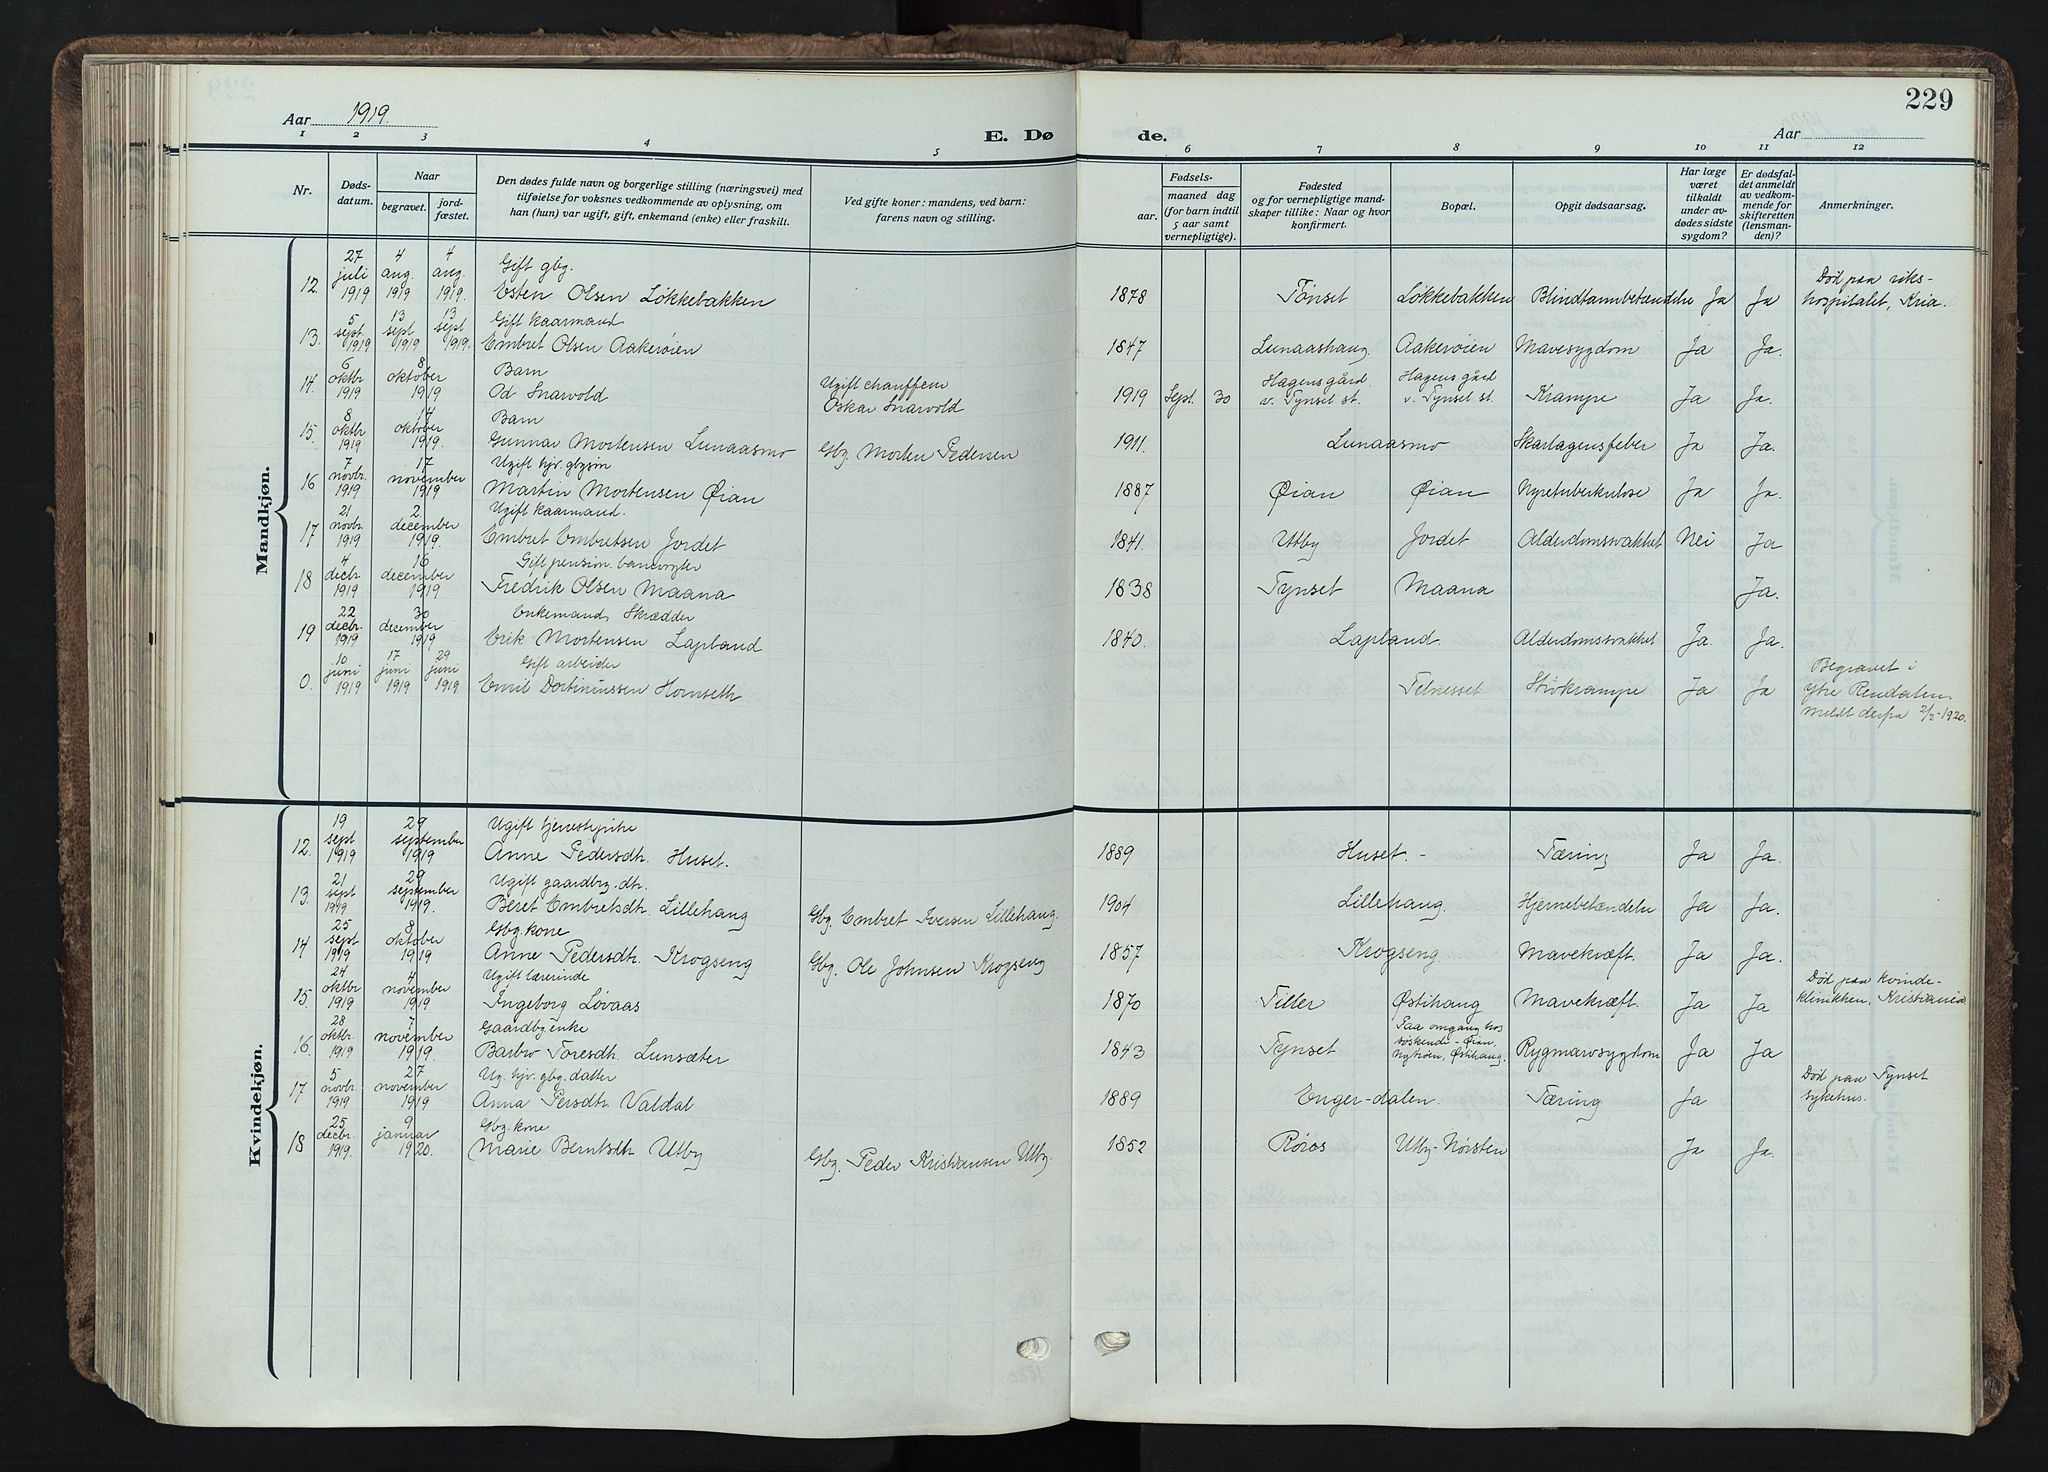 229
Aar 1919. E. Dø de. Aar
1 2 3 4 5 6 7 8 9 10 11 12
Nr. Døds-datum. Naar begravet. jord-fæstet. Den dødes fulde navn og borgerlige stilling (næringsvei) med tilføielse for voksnes vedkommende av oplysning, om han (hun) var ugift, gift, enkemand (enke) eller fraskilt. Ved gifte koner: mandens, ved barn: farens navn og stilling. Fødsels- aar. maaned dag (for barn indtil 5 aar samt vernepligtige). Fødested og for vernepligtige mandskaper tillike: Naar og hvor konfirmert. Bopæl. Opgit dødsaarsag. Har læge været tilkaldt under avdødes sidste sygdom? Er dødsfaldet anmeldt av vedkommende for skifteretten (lensmanden)? Anmerkninger.
Mandkjøn.
12. 27 juli 1919 4 aug. 1919 4 aug. 1919. Gift gbg. Esten Olsen Løkkebakken 1878 Tønset Løkkebakken Blindtarmbetændelse Ja Ja Død paa riks-hospitalet, Kria.
13. 5 sept. 1919 13 sept 1919 13 sept 1919. Gift kaarmand Embret Olsen Aakerøien 1847 Lunaashaug Aakerøien Mavesygdom Ja Ja.
14. 6 oktbr 1919 8 oktober 1919 Barn Od Snarvold Ugift chauffeur Oskar Snarvold 1919 Sept. 30 Hagens gård v. Tynset st. Hagens gård v. Tynset st. Krampe Ja Ja.
15. 8 oktbr 1919 14 oktober 1919. Barn Gunnar Mortensen Lunaasmo Gbg. Morten Pedersen 1911. Lunaasmo Skarlagensfeber Ja Ja.
16 7 novbr. 1919 17 november 1919 Ugift hjv. gbgsøn Martin Mortensen Øian 1887 Øian Øian Nyretuberkulose Ja Ja.
17 21 novbr. 1919 2 december 1919. Ugift kaarmand. Embret Embretsen Jordet 1841. Utby Jordet Alderdomssvakhet Nei Ja
18 4 decbr. 1919 16 december 1919 Gift pension. banevogter Fredrik Olsen Maana 1838 Tynset Maana Ja.
19 22 decbr. 1919 30 december 1919 Enkemand, Skrædder Erik Mortensen Lapland 1840. Lapland Alderdomssvakhet Ja. Ja.
0. 10 juni 1919 17 juni 1919 29 juni 1919 Gift arbeider Emil Dortinussen Hornseth Telnesset Stivkrampe Ja Ja Begravet i ytre Rendalen. meldt derfra 2/2-1920.
Kvindekjøn.
12. 19 sept 1919 29 september 1919 Ugift tjenestepike Anne Pedersdtr. Huset. 1889 Huset. - Tæring Ja Ja.
13. 21 sept 1919 29 september 1919. Ugift gaardbrg.dtr. Beret Embretsdtr. Lillehaug Gbg. Embret Iversen Lillehaug. 1904 Lillehaug. Hjernebetændelse Ja Ja.
14 25 sept 1919 8 oktober 1919 Gbg.kone Anne Pedersdtr. Krogseng Gbg. Ole Johnsen Krogseng 1857 Krogseng Mavekræft. Ja Ja.
15. 24 oktbr 1919 4 november 1919 Ugift lærerinde Ingeborg Løvaas 1870 Tiller Østihaug Mavekræft. Ja Ja Død paa kvinde-klinikken, Kristiania
16. 28 oktbr. 1919 7 november 1919. Gaardbg enke Barbro Toresdtr. Lunsæter 1843 Tynset Paa omgang hos søskende - Øian, Nytrøen, Østihaug. Rygmarvsygdom Ja Ja
17 5 novbr. 1919 27 november 1919 Ug. hjv. gbg.datter Anna Persdtr. Valdal 1889 Enger-dalen. Tæring Ja Død paa Tynset sykehus.
18 25 decbr. 1919. 9 januar 1920. Gbg.kone Marie Berntsdtr. Utby Gbg. Peder Kristiansen Utby. 1852 Røros Utby-Nørsten Ja Ja.